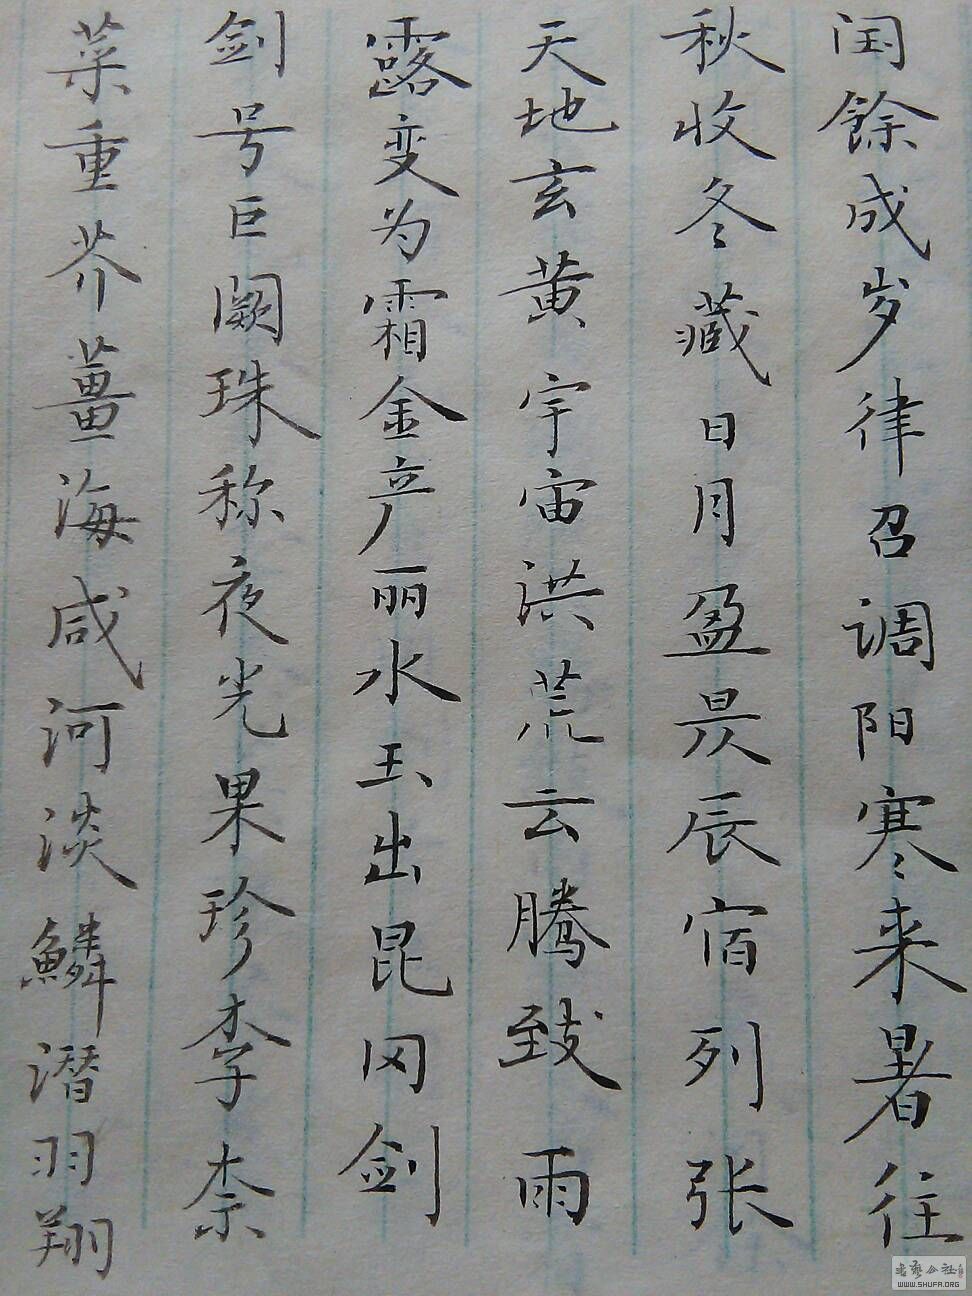 闰餘成岁律召调阳寒来暑往
秋收冬藏日月盈昃辰宿列张
天地玄黄宇宙洪荒云腾致雨
露变为霜金产丽水玉出昆冈剑
剑号巨阙珠称夜光果珍李柰
菜重芥薑海咸河淡鱗潜羽翔
书艺公社
WWW.SHUFA.ORG